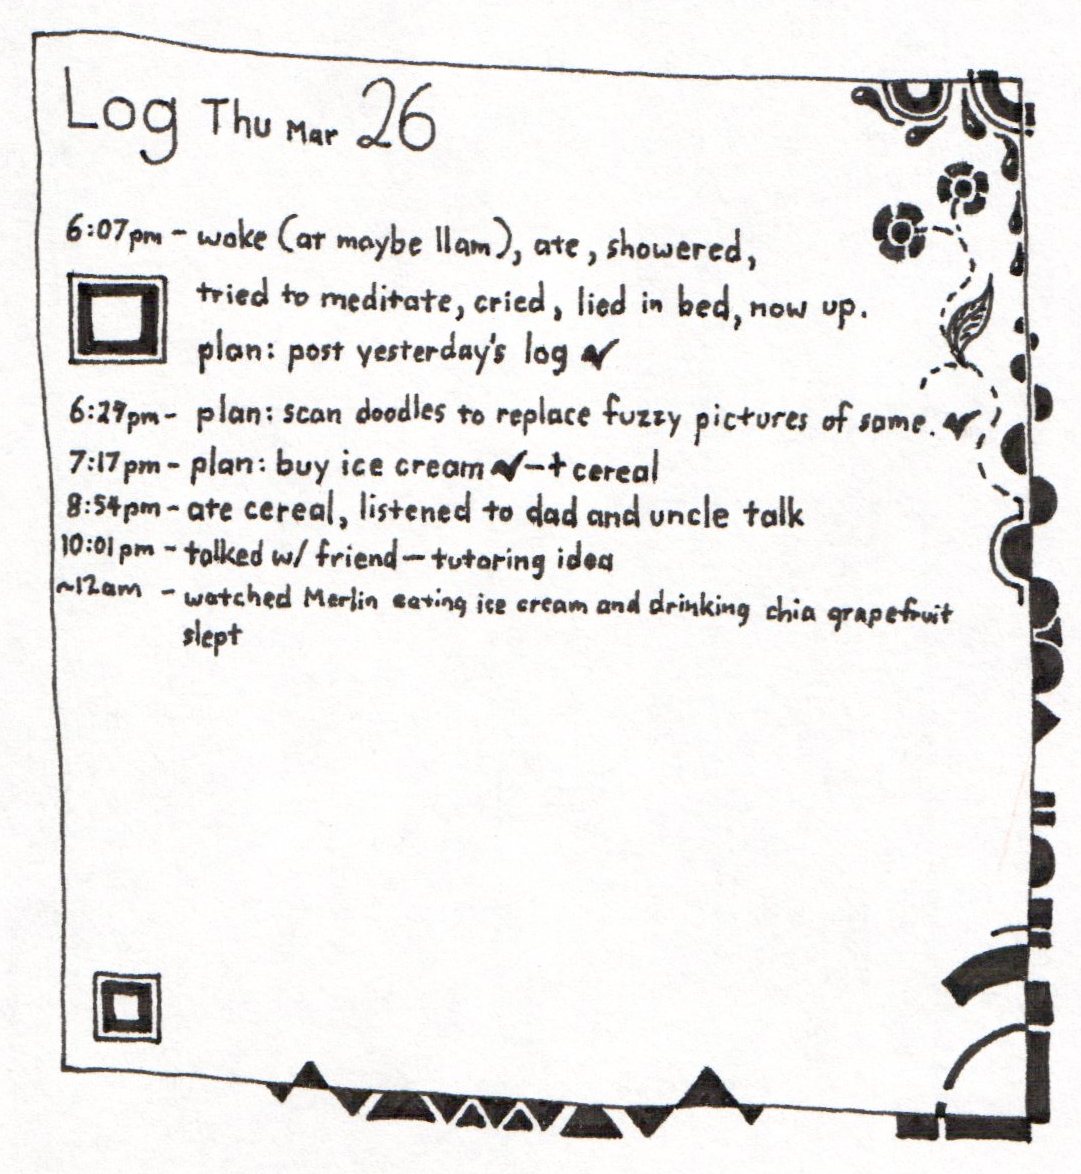 Log Thu Mar 26
6:07pm - woke (at maybe 11am), ate, showered,
tried to meditate, cried, lied in bed, now up.
plan: post yesterday's log ✓
6:29pm - plan: scan doodles to replace fuzzy pictures of same. ✓
7:17pm - plan: buy ice cream ✓ - + cereal
8:54pm - ate cereal, listened to dad and uncle talk
10:01pm - talked w/ friend - tutoring idea
~12am - watched Merlin eating ice cream and drinking chia grapefruit
slept